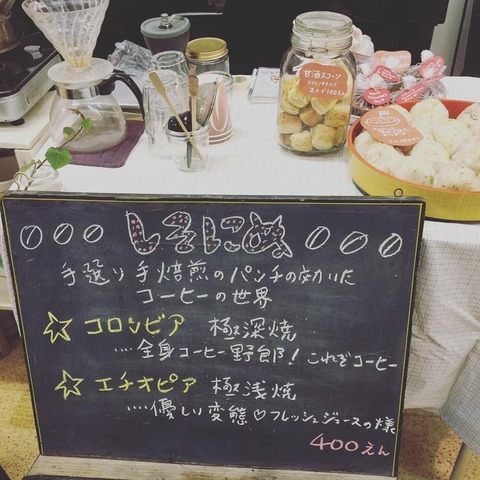 甘酒スコーン
2コで100えん
しまにゃ
手選り 手焙煎のパンチの効いた
コーヒーの世界
☆ コロンビア 極深焼
....全身コーヒー野郎! これぞコーヒー
☆ エチオピア 極浅焼
....優しい変態♡フレッシュジュースの様
400えん